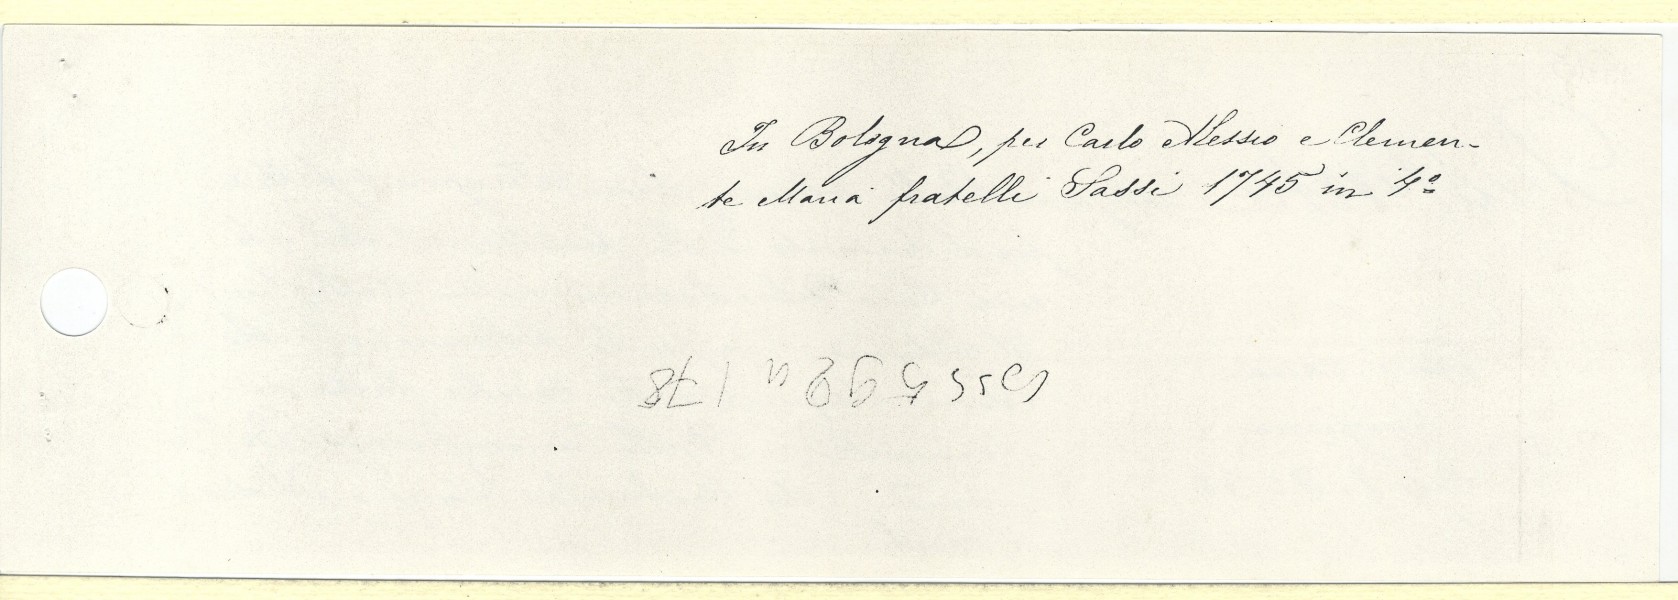 In Bologna, per Carlo Alessio e Clemen-
te Maria fratelli Sassi 1745 in 4º